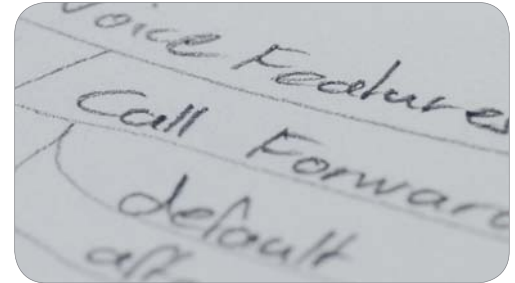 Voice Features
Call Forward
default